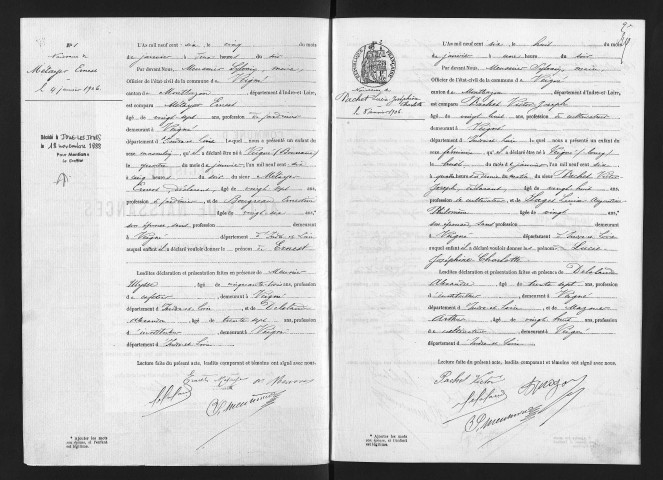 N° 1
Naissance de
Métayer Ernest
le 4 janvier 1906
Décédé à JOUE-LES-TOURS
le 18 novembre 1988
Pour Mention
Le Greffier
L'An mil neuf cent six, le cinq du mois
de janvier à une heure du soir
Par devant Nous Meusnier
Officier de l'état civil de la commune de Veigné
canton de Montbazon département d'Indre-et-Loire,
est comparu Métayer Ernest
âgé de vingt sept ans, profession
de jardinier
demeurant à Veigné
département d'Indre et Loire lequel nous a présenté un enfant du
sexe masculin qu'il a déclaré être né à Veigné
le quatre du mois de janvier l'an mil neuf cent six
à cinq heures du soir du sieur Métayer
Ernest déclarant âgé de vingt sept ans,
profession de jardinier et de
âgée de vingt six ans,*
son épouse, sans profession
demeurant à
Veigné département d'Indre et Loire
auquel enfant il a déclaré vouloir donner le prénom de Ernest
Lesdites déclaration et présentation faites en présence de Meusnier
Ulysse âgé de cinquante trois ans, profession
de demeurant à Veigné
département d'Indre et Loire et de Delaland
Alexandre âgé de trente sept ans, profession
d'instituteur demeurant à Veigné
département d'Indre et Loire
Lecture faite du présent acte, lesdits comparant et témoins ont signé avec nous.
* Ajouter les mots
son épouse, si l'enfant
est légitime.
REPUBLIQUE FRANÇAISE
Naissance de
Pachet Lucie Joséphine
Charlotte
le 8 janvier 1906
L'An mil neuf cent six, le huit du mois
de janvier à une heure du soir
Par devant Nous Meusnier
Officier de l'état civil de la commune de Veigné
canton de Montbazon département d'Indre-et-Loire,
est comparu Pachet Victor Joseph
âgé de vingt huit ans, profession
de cultivateur
demeurant à Veigné
département d'Indre et Loire lequel nous a présenté un enfant du
sexe féminin qu'il a déclaré être né à Veigné
le huit du mois de janvier l'an mil neuf cent six
à quatre heures du matin du sieur Pachet Victor
Joseph déclarant âgé de vingt huit ans,
profession de cultivateur et de
Philomène âgée de vingt ans,*
son épouse, sans profession
demeurant à
Veigné département d'Indre et Loire
auquel enfant il a déclaré vouloir donner les prénoms de Lucie
Joséphine Charlotte
Lesdites déclaration et présentation faites en présence de Delaland
Alexandre âgé de trente sept ans, profession
d'instituteur demeurant à Veigné
département d'Indre et Loire et de
Arthur âgé de vingt huit ans, profession
de cultivateur demeurant à Veigné
département d'Indre et Loire
Lecture faite du présent acte, lesdits comparant et témoins ont signé avec nous.
Pachet Victor
* Ajouter les mots
son épouse, si l'enfant
est légitime.